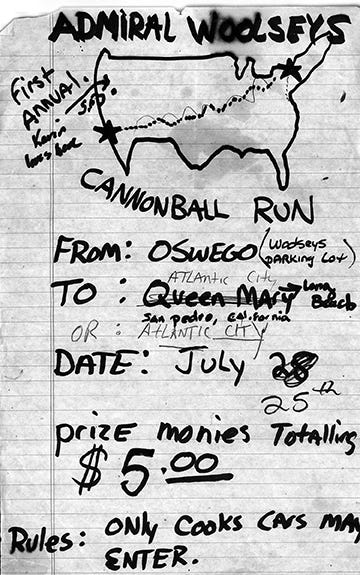 ADMIRAL WOOLSEYS
First
ANNUAL.
Kevin
was here
CANNONBALL RUN
FROM: OSWEGO (Woolseys
PARKING LOT)
ATLANTIC City
TO : Queen Mary → Long
Beach
San pedro, California
OR : ATLANTIC CITY
DATE: July 28
25th
prizE monies Totalling
$5.00
Rules: ONLY COOKS CARS MAY
ENTER.